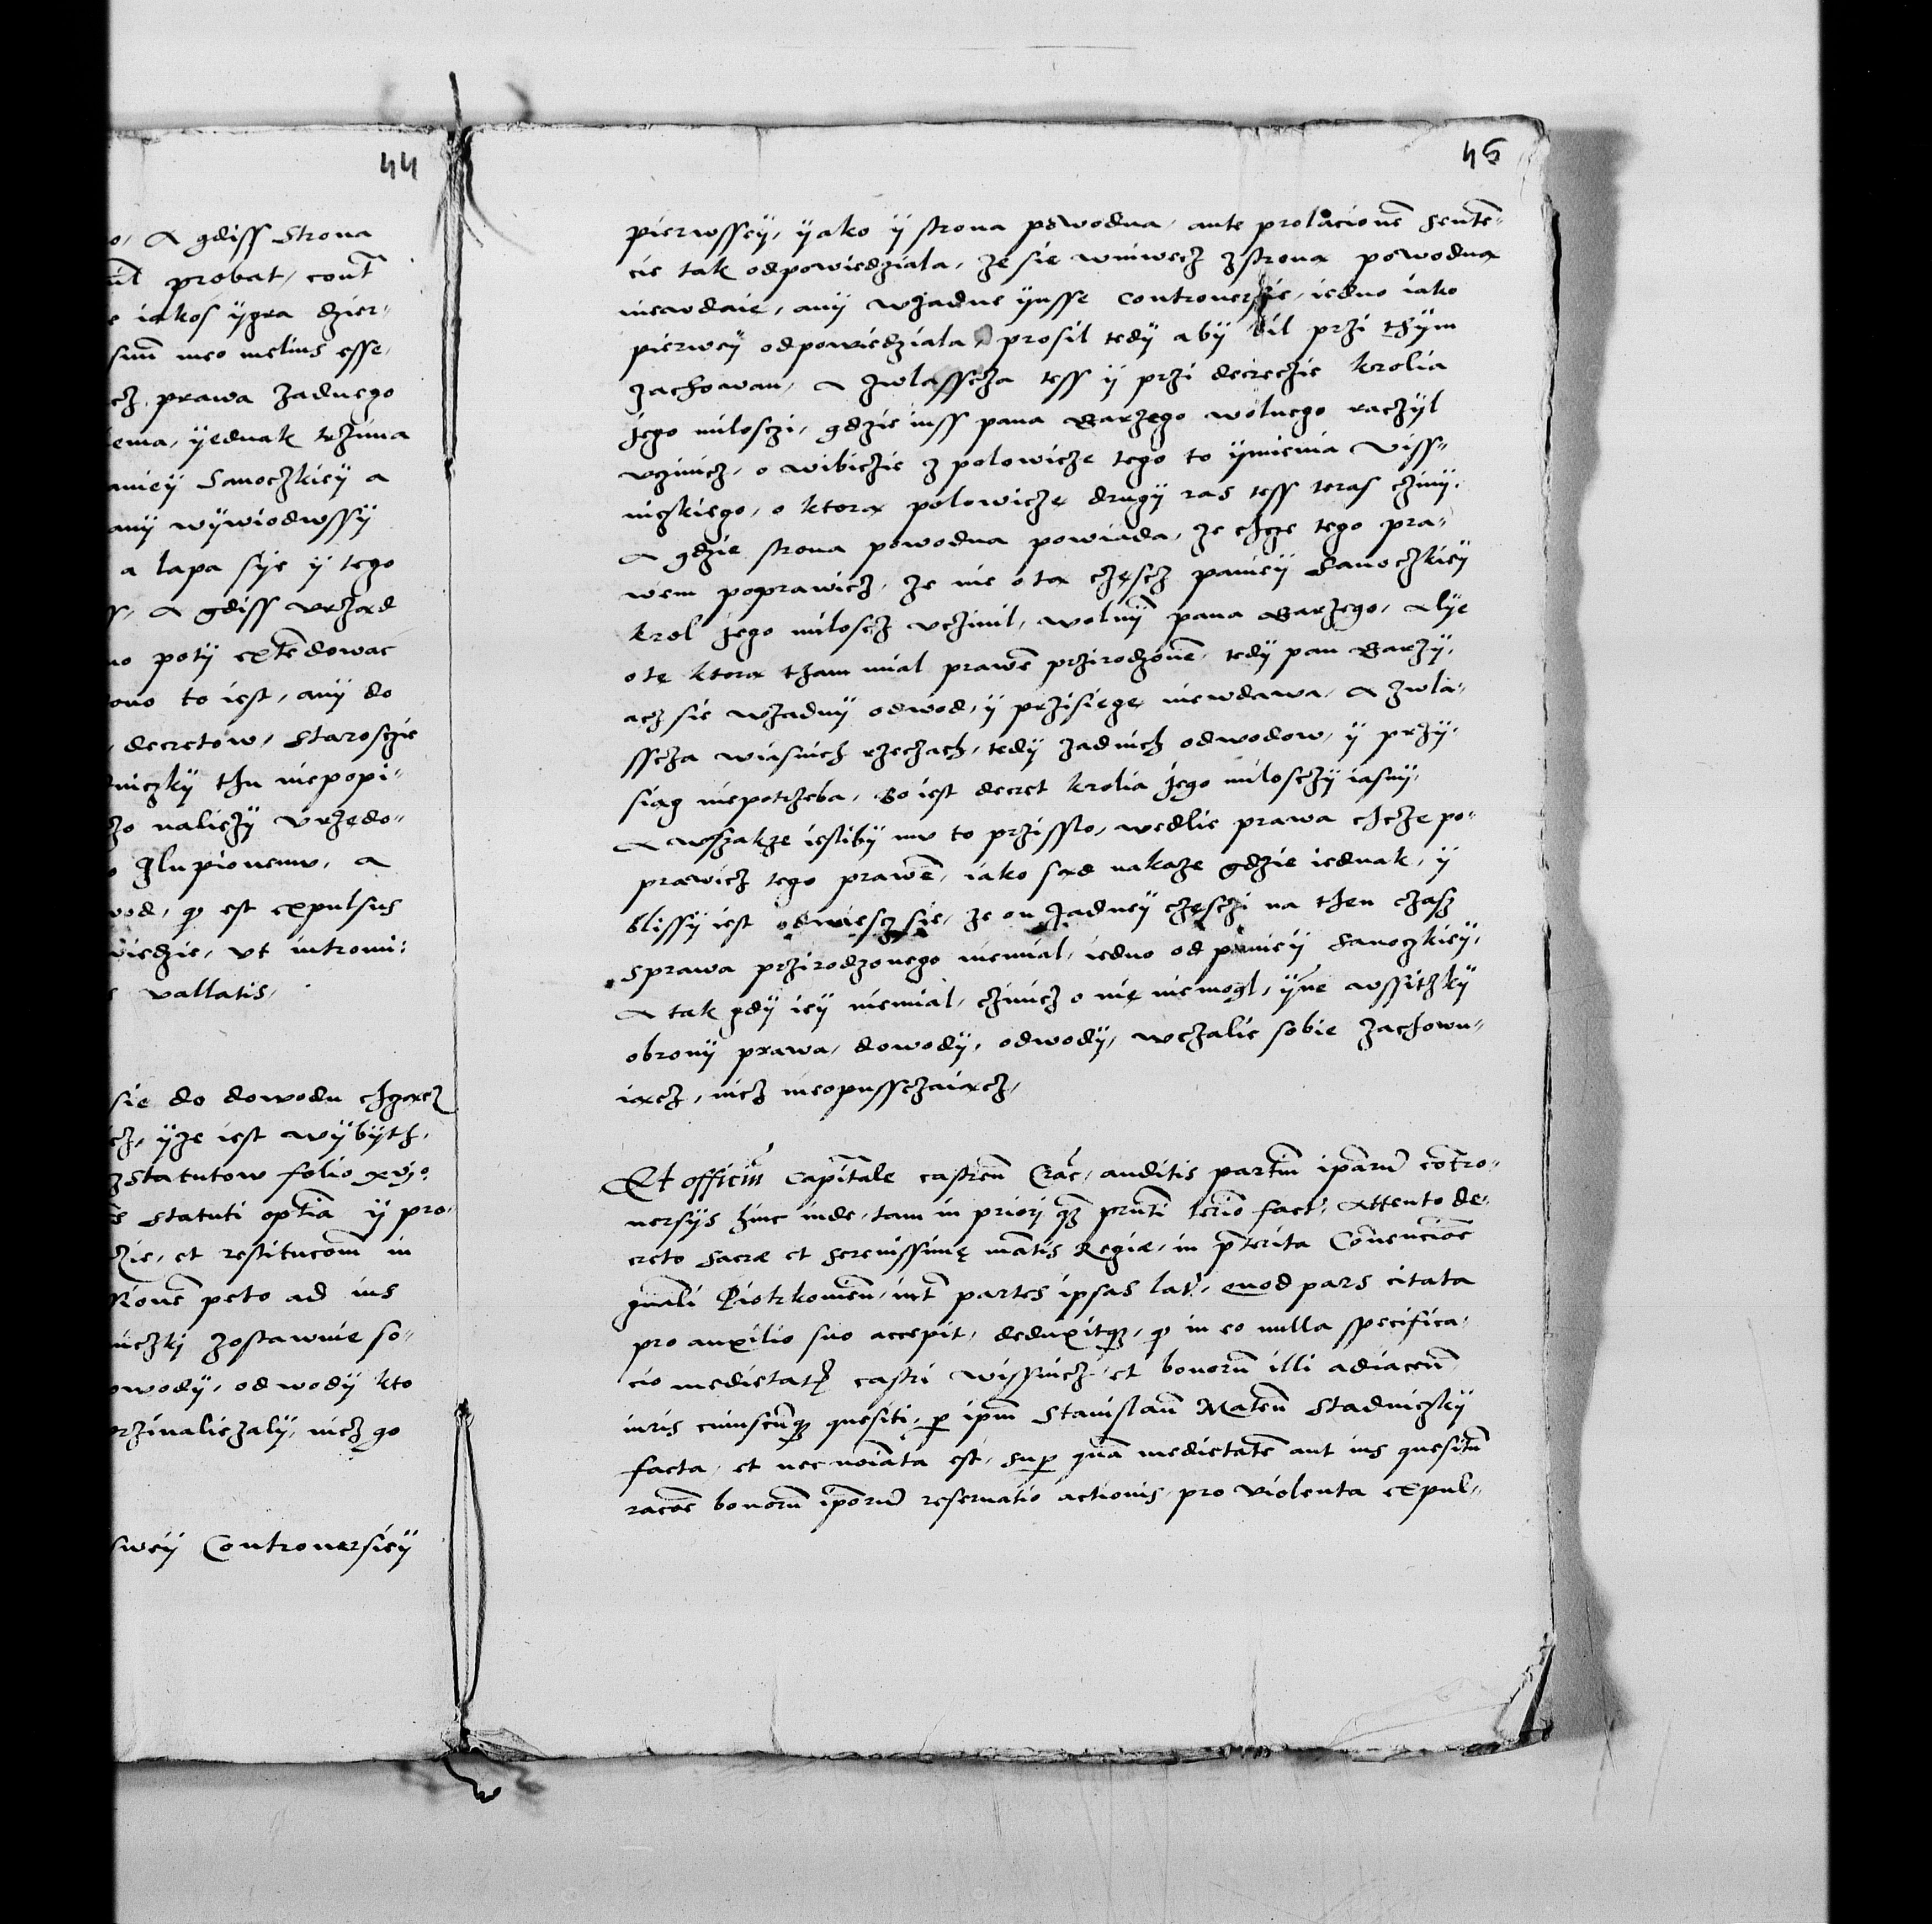 44
o, A gdiss Strona
probat, cont
iakos ygra dzier-
suum meo melius esse,
cz prawa zadnego
iema, yednak trzima
aniey Sanoczkiey a
any wywiodwssy
a lapa sye y tego
A gdiss vrzad
no poty extendowac
ono to iest, any do
decretow, Starosczie
niczky thu niepopi-
zo naliezy vrzędo-
zlupionemu, a
wod, qd est expulsus
wiedzie, vt intromi:
vallatis,
sie do dowodu chczącz
cz, yze iest wybyth,
Statutow folio xvj.
Statuti optia y pro-
zie, et restitucom in
ssione peto ad ius
niczkj zostawuie so-
owody, odwody kto
przinaliezaly, nicz go
swey Controuersiey
45
pierwssey, yako y strona powodna, ante prolacione senten-
cie tak odpowiedziala, ze sie wniwecz z stroną powodną
niewdaie, any wzadne ynsse controuersie, iedno iako
pierwey odpowiedziala, prosil tedy aby bil przi thym
zachowan, A zwlasscza tess y przi decreczie krolia
Jego milosczi, gdzie iuss pana Barzego wolnego raczyl
vczinicz, o wibiczie z polowicze tego to ymienia Viss-
niczkiego, o ktorą polowiczę drugy ras tess teras czini,
A gdzie strona powodna powiada, ze chcze tego pra-
wem poprawicz, ze nie o tą częscz paniey Sanoczkiey
krol Jego miloscz vczinil, wolny pana Barzego, Alye
o tę ktorą tham mial prawe przirodzone, tedy pan Barzy,
acz sie wzadny odwod, y przisięgę niewdawa, A zwla-
sscza wiasnich rzeczach, tedy zadnich odwodow, y przy-
siąg niepotrzeba, Bo iest decret krolia Jego milosczy iasny,
A wszakze iestliby mu to prziszlo, wedlie prawa chcze po-
prawicz tego prawe, iako sąd nakaze gdzie iednak, y
blissy iest odwiescz sie, ze on zadney częsczi na then czasz
sprawa przirodzonego niemial, iedno od paniey Sanoczkiey,
A tak gdy iey niemial, czinicz o nię niemogl, yne wssitzky
obrony prawa, dowody, odwody, wczalie sobie zachowu-
iącz, nicz nieopussczaiącz,
Et officiu Capitale castren Crac, auditis partiu iparu contro-
uersijs hinc inde, tam in priori qz pnti terio fact, Attento de-
creto Sacrae et serenissimę mtis Regiae, in pterita Convencioe
gnali Piotrkowien, int partes ipsas lat, quod pars citata
pro auxilio suo accepit, deduxitqz, qd in eo nulla specifica-
cio medietatis castri Wissnicz, et bonoru illi adiacen
iuris cuiuscuqz quesiti, p ipm Stanislau Mateu Stadniczky
facta, et nec noiata est, sup qua medietate aut ius quesitu
racoe bonoru iporu reseruatio actionis, pro violenta expul-